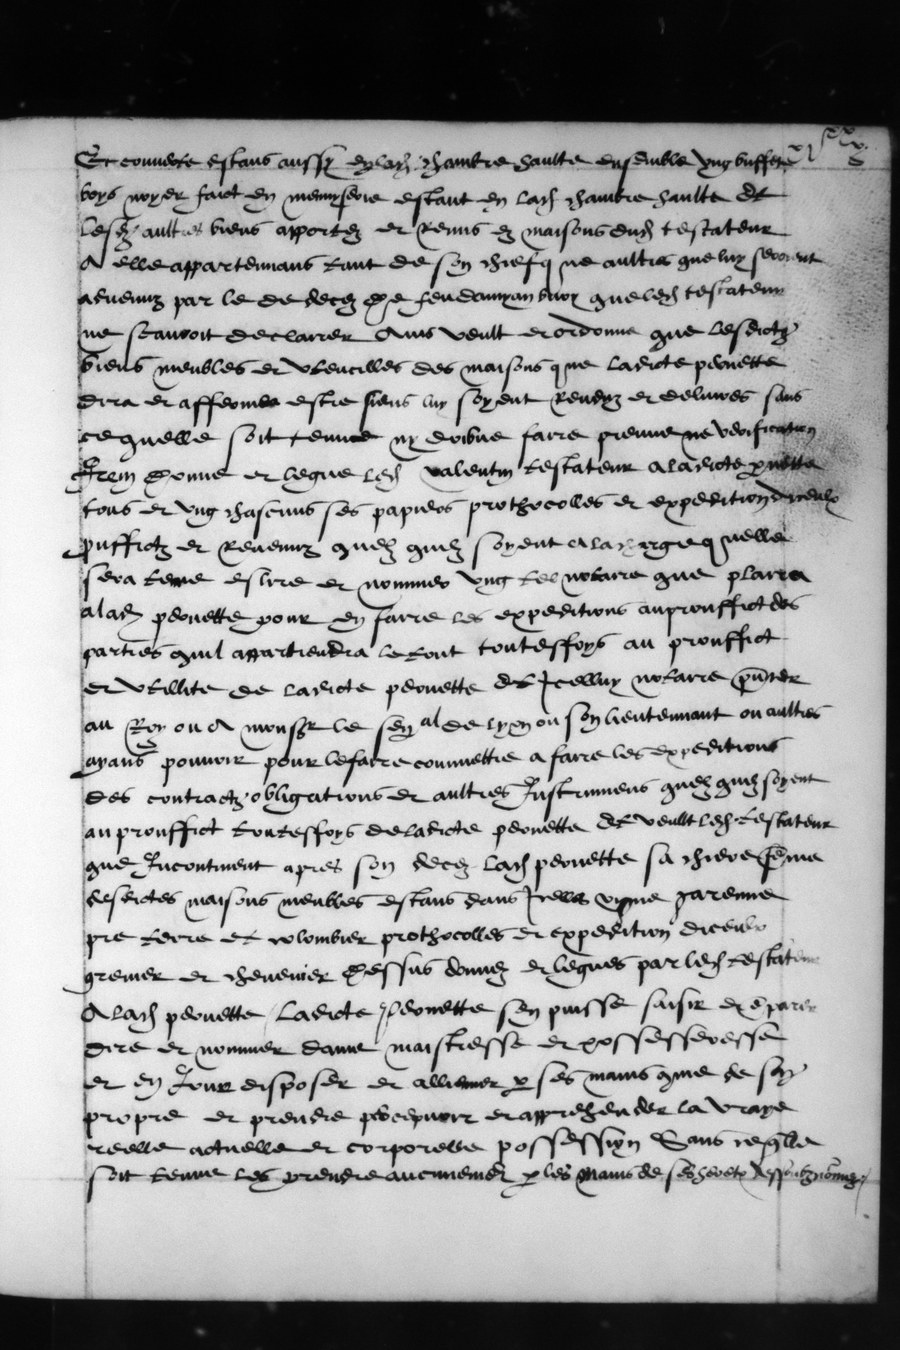 Et couverte estans aussy en lad. chambre haulte ensemble ung buffet de
boys noyer faict en menuyserie estant en lad. chambre haulte et
lesd. aultres biens apportez et remis ez maisons dud. testateur
A elle appartenans tant de son chiefz que aultres que luy seroient
advenuz par le de decez de feu que led. testateur
ne scauroit declarrer Ains veult et ordonne que lesdictz
biens meubles et utencilles des maisons que ladicte pernette
dira et affermera estre siens luy soyent renduz et delivres sans
ce quelle soit tenue ny doibve faire preuve ne veriffication
Item donne et legue led. Valentin testateur a ladicte pernette
tous et ung chascuns ses papiers prothocolles et expedition diceulx
proffictz et revenuz quelz quilz soyent a la charge quelle
sera tenue eslire et nommer ung tel notaire que plaira
a lad. pernette pour en faire les expeditions au prouffict des
parties quil appartiendra le tout toutesfoys au prouffict
et utillite de ladicte pernette et Icelluy notaire pnter
au Roy ou A monsr le senal de lyon ou son lieutennant ou aultres
ayans pouvoir pour le faire commettre a faire les expeditions
des contractz obligations et aultres Instrumens quelz quilz soyent
au prouffict toutesfoys de ladicte pernette et veult led. testateur
que Incontinent apres son decez lad. pernette sa chiere feme
desdictes maisons meubles estans dans Icelles vigne garenne
pre terre et colombier prothocolles et expedition diceulx
grenier et chenevier dessus donnez et leguez par led. testateur
A lad. pernette / Ladicte pernette sen puisse saisir et
dire et nommer dame maistresse et possesseresse
et en Jouir disposer et p ses mains que de soy
propre et prendre percepvoir et apprehender la vraye
reelle actuelle et corporelle possession Sans ce qlle
soit tenue les prendre aucunement p les mains de ses heretz dessoubz nommez /